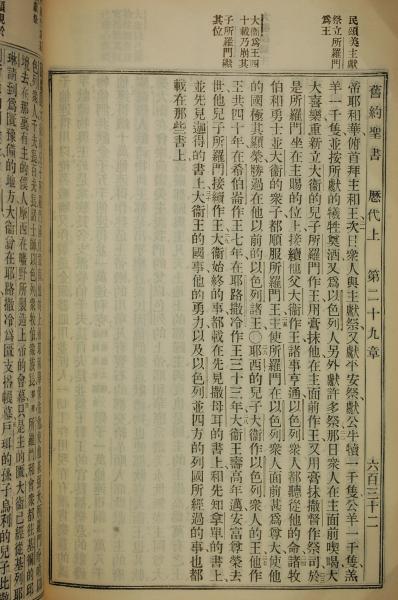 民頌美主獻
祭立所羅門
爲王
大衛爲王四
十載乃崩其
子所羅門嗣
其位
舊約聖書 歷代上 第二十九章 六百三十二
帝耶和華俯首拜主和王次日衆人與主獻祭又獻平安祭獻公牛犢一千隻公羊一千隻羔
羊一千隻並按所獻的犧牲奠酒又爲以色列人另外獻許多祭那日衆人在主面前喫喝大
大喜樂重新立大衛的兒子所羅門作王用膏抹他在主面前作王又用膏抹撒督作祭司於
是所羅門坐在主賜的位上接續他父大衛作王諸事亨通以色列衆人都聽從他的命諸牧
伯和勇士並大衛的衆子都順服所羅門王主使所羅門在以色列衆人面前甚爲尊大使他
的國極其顯榮勝過在他以前的以色列諸王〇耶西的兒子大衛作以色列衆人的王他作
王共四十年在希伯崙作王七年在耶路撒冷作王三十三年大衛王壽高年邁安富尊榮去
世他兒子所羅門接續作王大衛始終的事都載在先見撒母耳的書上和先知拿單的書上
並先見迦得的書上大衛王的國事他的勇力以及以色列並四方的列國所經過的事也都
載在那些書上